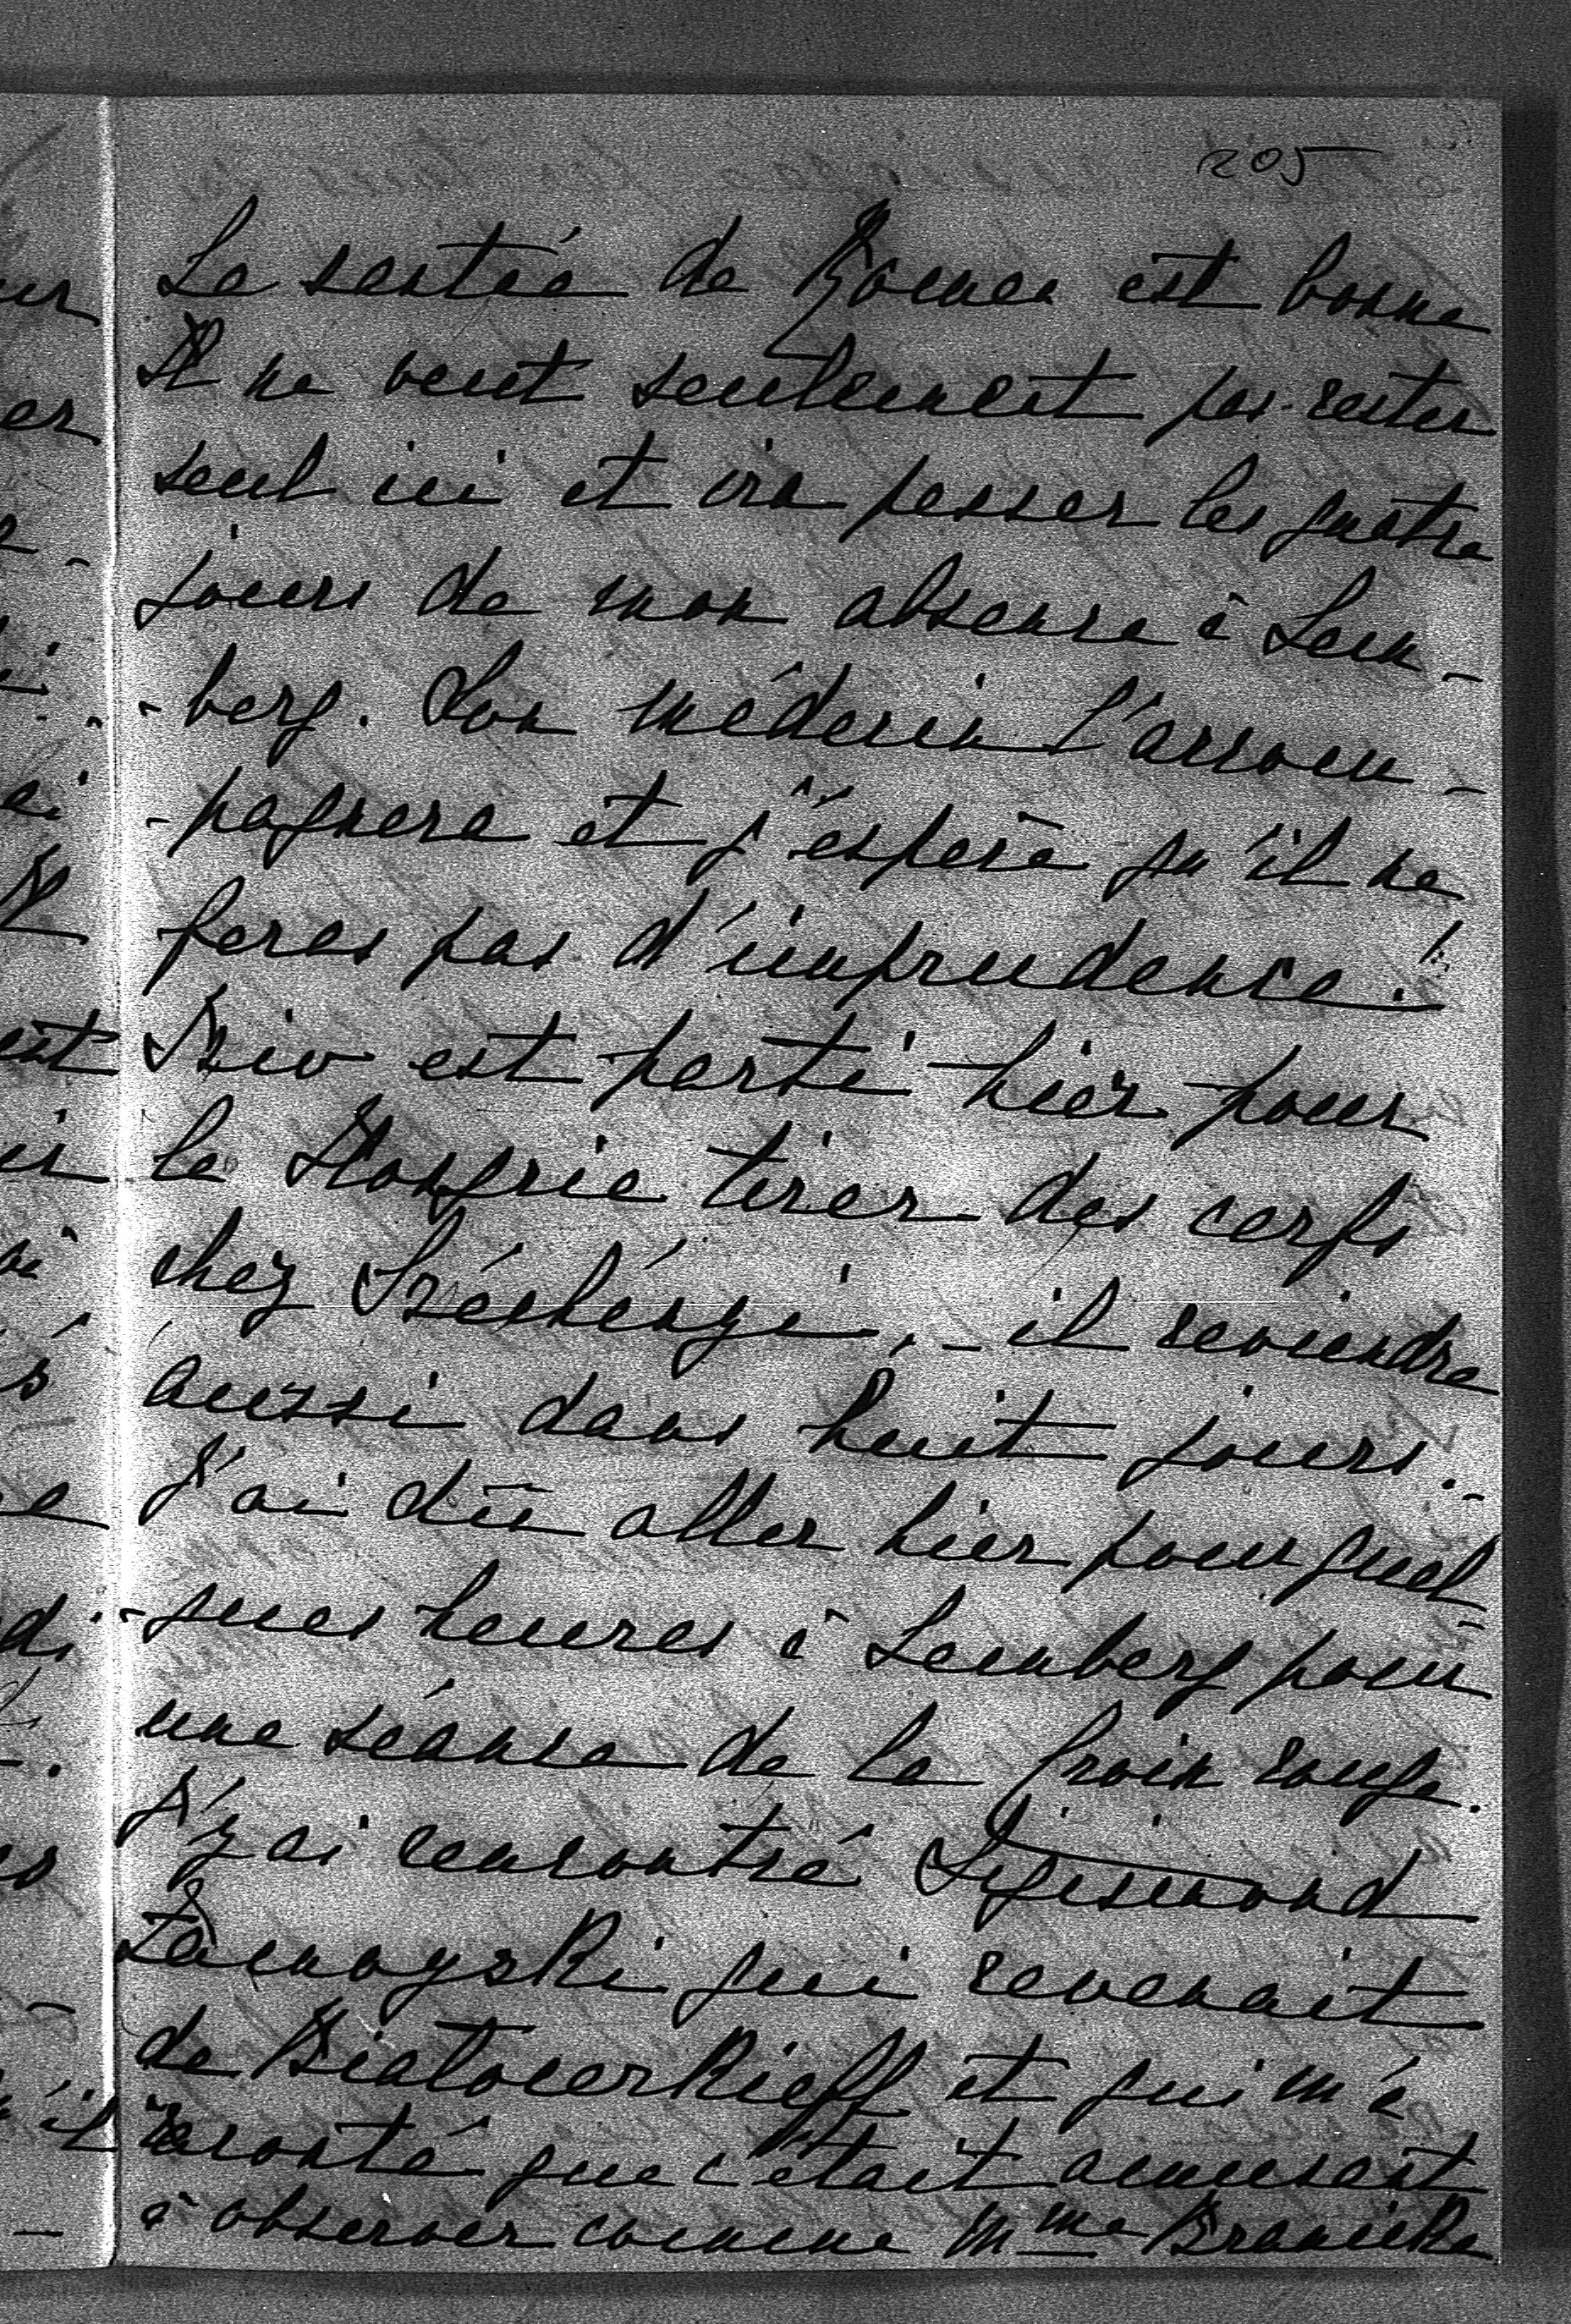 205
La santée de Romer est bonne
Il ne veut seulement pas rester
seul ici et ira passer les quatre
jours de mon absence à Lem-
-berg. Son médecin l'accom-
-pagnera et j'espère qu'il ne
feras pas d'imprudence.
est parti hier pour
la Hongrie tirer des cerfs
chez Széchényi, - il reviendra
aussi dans huit jours.-
J'ai dû aller hier pour quel-
-ques heures à Lemberg pour
une séance de la Croix rouge.
J'y ai rencontré Sigismond
Zamoyski qui revenait
de Biatocerkieff et qui m'a
raconté que c'était amusant
à observer comme Mme Branicka